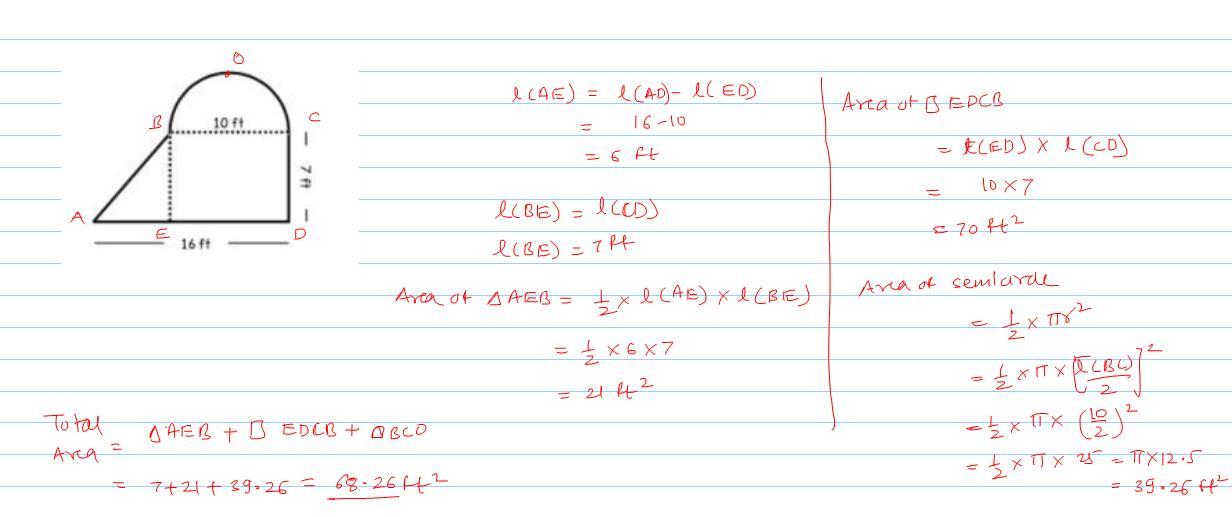 O
B 10 ft C
7 ft
A E D
16 ft
l(AE) = l(AD) - l(ED)
= 16-10
= 6 ft
l(BE) = l(CD)
l(BE) = 7 ft
Area of △AEB = 1/2 × l(AE) × l(BE)
= 1/2 × 6 × 7
= 21 ft²
Area of □ EDCB
= l(ED) × l(CD)
= 10 × 7
= 70 ft²
Area of semicircle
= 1/2 × πr²
= 1/2 × π × [l(BC)/2]²
= 1/2 × π × (10/2)²
= 1/2 × π × 25 = π × 12.5
= 39.26 ft²
Total Area = △AEB + □ EDCB + ⌓BCO
= 7+21+39.26 = 68.26 ft²